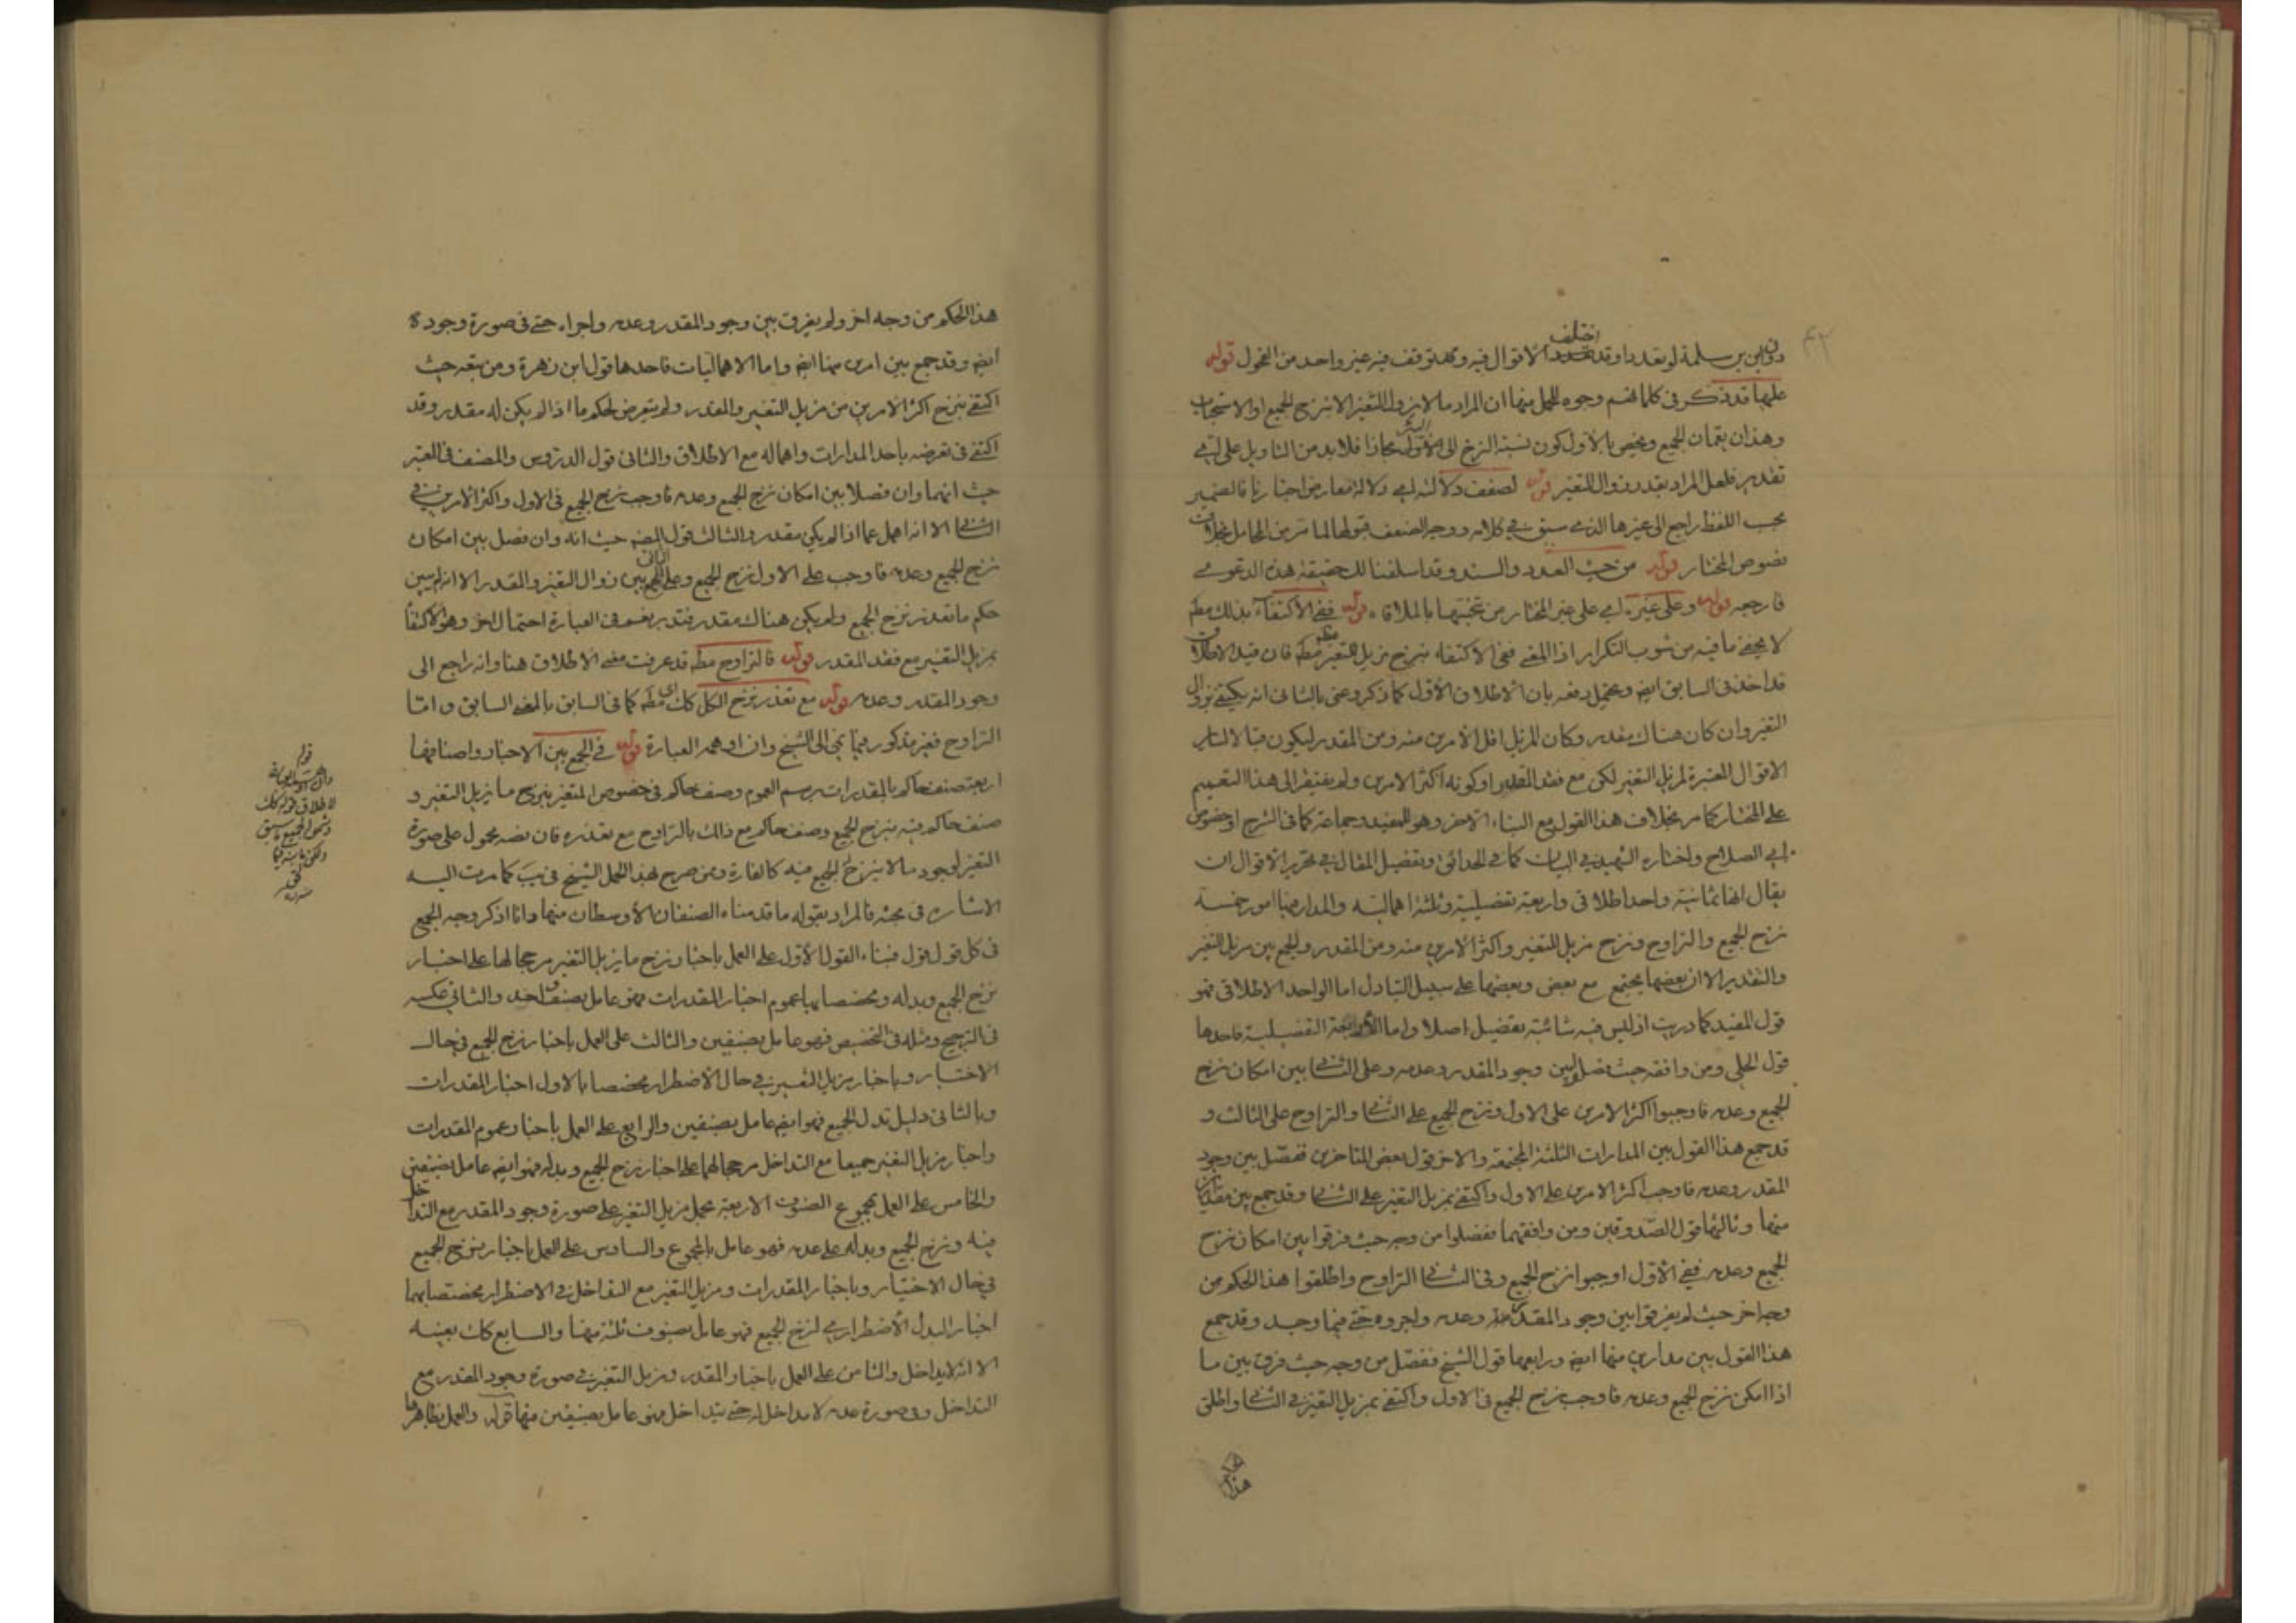 ۴۲
اختلف
دون ابن سلمة لو تعددا وقد تعدد الاقوال فيه وقد توقف فيه غير واحد من الفحول قوله
عليها قد ذكر في كلماتهم وجوه للجمع بينها ان المراد ما لا يزول التغير الا بنزح الجميع او الاستحباب
وهذان يعمان الجميع ويخص بالاول كون نسبة النزح الى الاول مجازا فلا بد من التاويل على اي
تقدير فلعل المراد بقدر زوال التغير قوله لضعف دلالته اي دلالة معارض اخبارنا فالضمير
بحسب اللفظ راجع الى غيرها الذي سبق في كلامه ووجه الضعف قبولها لما مر من المحامل بخلاف
نصوص المختار قوله من حيث العدد والسند وقد اسلفنا لك حقيقة هذه الدعوى
فارجعه قوله وعلى غيره اي على غير المختار من تنجسها بالملاقاة قوله ففي الاكتفاء بذلك مط
لا يخفى ما فيه من شوب التكرار اذ المعنى ففي الاكتفاء بنزح مزيل التغير مطه فان قيد الاطلاق
قد اخذ في السابق ايضه ويحتمل دفعه بان الاطلاق الاول كما ذكر وعنى بالثاني انه يكتفي بزوال
التغير وان كان هناك مقدر وكان المزيل اقل الامرين منه ومن المقدر ليكون قبالا لسائر
الاقوال المعتبرة لمزيل التغير لكن مع فقد المقدر او كونه اكثر الامرين ولم يفتقر الى هذا التعميم
على المختار كما مر بخلاف هذا القول مع البناء الاخر وهو للمفيد وجماعة كما في الشرح او خصوص
ابي الصلاح واختاره الشهيد في البيان كما في الحدائق وتفصيل المقال في تحرير الاقوال ان
يقال انها ثمانية واحد اطلاقي واربعة تفصيلية وثلثة اهمالية والمدار منها امور خمسة
نزح الجميع والتراوح ونزح مزيل التغير واكثر الامرين منه ومن المقدر والجمع بين مزيل التغير
والتقدير الا ان بعضها يجتمع مع بعض وبعضها على سبيل التبادل اما الواحد الاطلاقي فهو
قول المفيد كما دريت اذ ليس فيه شائبة تفصيل اصلا واما الاربعة التفصيلية فاحدها
قول الحلي ومن وافقه حيث فصلوا بين وجود المقدر وعدمه وعلى الثاني بين امكان نزح
الجميع وعدمه فاوجبوا اكثر الامرين على الاول ونزح الجميع على الثاني والتراوح على الثالث و
قد جمع هذا القول بين المدارات الثلثة المجتمعة والاخر قول بعض المتاخرين ففصل بين وجود
المقدر وعدمه فاوجب اكثر الامرين على الاول واكتفى بمزيل التغير على الثاني وقد جمع بين
منها وثالثها قول الصدوقين ومن وافقهما ففصلوا من وجه حيث فرقوا بين امكان نزح
الجميع وعدمه ففي الاول اوجبوا نزح الجميع وفي الثاني التراوح واطلقوا هذا الحكم من
وجه اخر حيث لم يفرقوا بين وجود المقدر وعدمه واجروه حتى فيما وجد وقد جمع
هذا القول بين مدارين منها ايضه ورابعها قول الشيخ ففصل من وجه حيث فرق بين ما
اذا امكن نزح الجميع وعدمه فاوجب نزح الجميع في الاول واكتفى بمزيل التغير في الثاني واطلق
هذا
هذا الحكم من وجه اخر ولم يفرق بين وجود المقدر وعدمه واجراه حتى في صورة وجوده
ايضه وقد جمع بين امرين منها ايضه واما الاهماليات فاحدها قول ابن زهرة ومن تبعه حيث
اكتفى بنزح اكثر الامرين من مزيل التغير والمقدر ولم يتعرض لحكم ما اذا لم يكن له مقدر وقد
اكتفى في تعرضه باحد المدارات واهماله مع الاطلاق والثاني قول الدروس والمصنف في المعتبر
حيث انهما وان فصلا بين امكان نزح الجميع وعدمه فاوجب نزح الجميع في الاول واكثر الامرين في
الثاني الا انه اهمل عما اذا لم يكن مقدر والثالث قول المصه حيث انه وان فصل بين امكان
نزح الجميع وعدمه فاوجب على الاول نزح الجميع وعلى الثاني الجمع بين زوال التغير والمقدر الا انه لم يبين
حكم ما تعذر نزح الجميع ولم يكن هناك مقدر فتدبر نعم في العبارة احتمال اخر وهو الاكتفاء
بمزيل التغير مع فقد المقدر قوله فالتراوح مطه قد عرفت معنى الاطلاق هنا وانه راجع الى
وجود المقدر وعدمه قوله مع تعذر نزح الكل كك اي مطه كما في السابق بالمعنى السابق واما
التراوح فغير مذكور فيما يحكى الى الشيخ وان اوهمه العبارة قوله في الجمع بين الاخبار واصنافها
اربعة صنف حاكم بالمقدرات برسم العموم وصنف حاكم في خصوص المتغير بنزح ما يزيل التغير و
صنف حاكم فيه بنزح الجميع وصنف حاكم مع ذلك بالتراوح مع تعذره فان نصه محمول على صورة
التغير لوجود ما لا ينزح الجميع فيه كالفارة ومن صرح بهذا الحمل الشيخ في يب كما مرت اليه
الاشارة في بحثه فالمراد بقوله ما قدمناه الصنفان الاوسطان منها وانا اذكر وجه الجمع
في كل قول قول فبناء القول الاول على العمل باخبار نزح ما يزيل التغير مرجحا لها على اخبار
نزح الجميع وبدله ومخصصا بها عموم اخبار المقدرات فهو عامل بصنف واحد والثاني عكسه
في الترجيح ومثله في التخصيص فهو عامل بصنفين والثالث على العمل باخبار نزح الجميع في حال
الاختيار وباخبار مزيل التغير في حال الاضطرار مخصصا بالاول اخبار المقدرات
وبالثاني دليل بدل الجميع فهو ايضه عامل بصنفين والرابع على العمل باخبار عموم المقدرات
واخبار مزيل التغير جميعا مع التداخل مرجحا لهما على اخبار نزح الجميع وبدله فهو ايضه عامل بصنفين
والخامس على العمل بمجموع الصنوف الاربعة بحمل مزيل التغير على صورة وجود المقدر مع التداخل
فيه ونزح الجميع وبدله على عدمه فهو عامل بالمجموع والسادس على العمل باخبار نزح الجميع
في حال الاختيار وباخبار المقدرات ومزيل التغير مع التداخل في الاضطرار مخصصا بهما
اخبار البدل الاضطراري لنزح الجميع فهو عامل بصنوف ثلثة منها والسابع كك بعينه
الا انه لا يداخل والثامن على العمل باخبار المقدر ومزيل التغير في صورة وجود المقدر مع
التداخل وفي صورة عدمه لا مداخل له حتى يتداخل فهو عامل بصنفين منها قوله والعمل بظاهرها
قوله
لاطلاق قوله كك